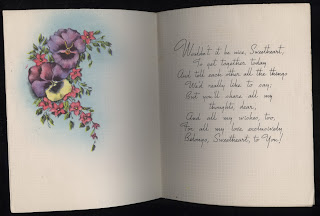 Wouldn't it be nice, Sweetheart,
To get together today
And tell each other all the things
We'd really like to say;
But you'll where all my
thoughts, dear,
And all my wishes, too,
For all my love exclusively
Belongs, Sweetheart, to You!